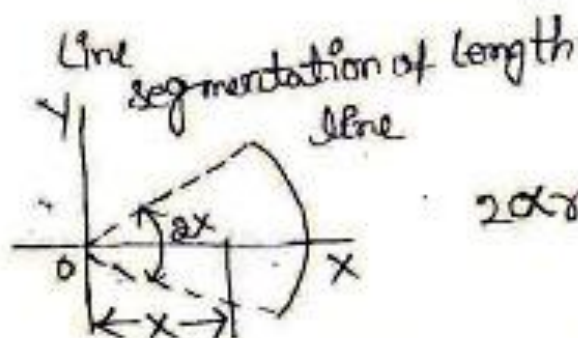 Line
segmentation of Length
line
Y
2x
2αr
O
X
x